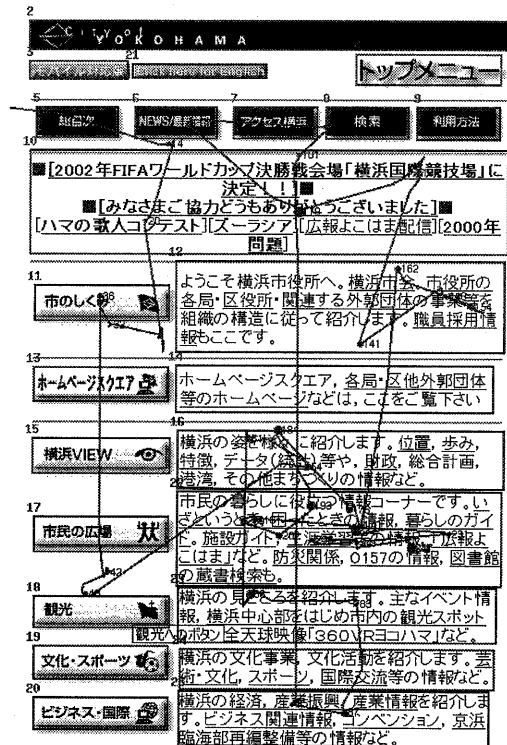 2
City of
YOKOHAMA
3
21
Click here for English
トップメニュー
5
6
7
8
9
総目次
NEWS/最新情報
アクセス横浜
検索
利用方法
10
■[2002年FIFAワールドカップ決勝戦会場「横浜国際競技場」に
決定！！]■
■[みなさまご協力どうもありがとうございました]■
[ハマの歌人コンテスト][ズーラシア][広報よこはま配信][2000年
問題]
11
12
市のしくみ
ようこそ横浜市役所へ。横浜市会、市役所の
各局・区役所・関連する外郭団体の事業等を
組織の構造に従って紹介します。職員採用情
報もここです。
13
14
ホームページスクエア
ホームページスクエア, 各局・区他外郭団体
等のホームページなどは, ここをご覧下さい
15
16
横浜VIEW
横浜の姿を様々に紹介します。位置, 歩み,
特徴, データ(統計)等や, 財政, 総合計画,
港湾, その他まちづくりの情報など。
17
市民の広場
市民の暮らしに役立つ情報コーナーです。い
ざというとき・困ったときの情報, 暮らしのガイ
ド, 施設ガイド,
こはま」など。防災関係, O157の情報, 図書館
の蔵書検索も。
18
観光
横浜の見どころを紹介します。主なイベント情
報, 横浜中心部をはじめ市内の観光スポット
観光へのボタン 全天球映像「360VRヨコハマ」など。
19
文化・スポーツ
横浜の文化事業, 文化活動を紹介します。芸
術・文化, スポーツ, 国際交流等の情報など。
20
ビジネス・国際
横浜の経済, 産業振興, 産業情報を紹介しま
す。ビジネス関連情報, コンベンション, 京浜
臨海部再編整備等の情報など。